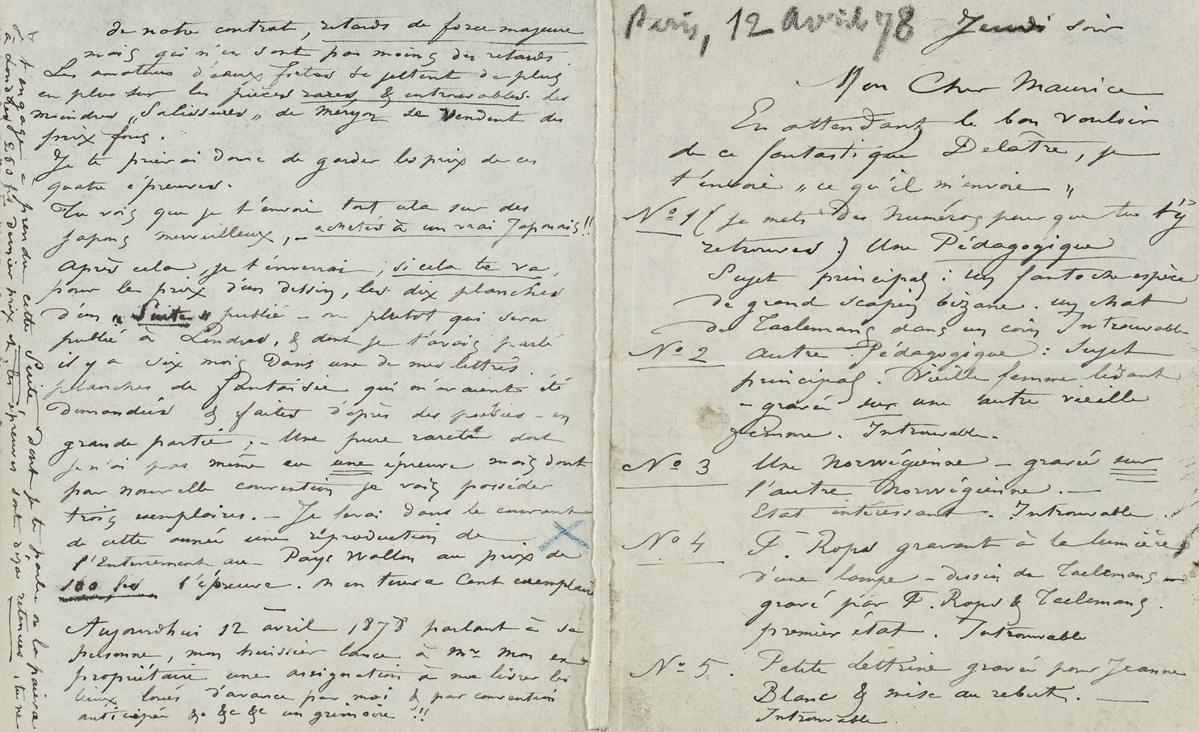 Paris, 12 Avril 78 Jeudi soir
Mon Cher Maurice
En attendant le bon vouloir
de ce fantastique Delatre, je
t'envoie "ce qu'il m'envoie"
No 1 (je mets des numéros pour que tu t'y
retrouves) Une Pédagogique
Sujet principal : un fantoche espèce
de grand scapin bizarre. un chat
de Taelemans dans un coin Introuvable
No 2 autre Pédagogique : Sujet
principal. Vieille femme lisant
- gravée sur une autre vieille
femme. Introuvable.
No 3 Une Norwégienne - gravée sur
l'autre Norwégienne. -
Etat intéressant. Introuvable
No 4 F. Rops gravant à la lumière
d'une lampe - dessin de Taelemans -
gravé par F. Rops & Taelemans.
premier état. Introuvable
No 5. Petite lettrine gravée pour Jeanne
Blanc & mise au rebut. -
Introuvable.
de notre contrat, retards de force majeure
mais qui n'en sont pas moins des retards.
Les amateurs d'eaux fortes se jettent de plus
en plus sur les pièces rares, & introuvables. les
moindres "Salissures" de Meryon se vendent des
prix fous.
Je te prierai donc de garder les prix de ces
quatre épreuves.
Tu vois que je t'envoie tout cela sur des
Japons merveilleux, - achetés à un vrai Japonais!!
Après cela, je t'enverrai, si cela te va,
pour le prix d'un dessin, les dix planches
d'un "Suite" publié - ou plutot qui sera
publié à Londres, & dont je t'avais parlé
il y a six mois dans une de mes lettres.
planches de fantaisie qui m'avaient été
demandées & faites d'après des poësies - en
grande partie ; - Une pure rareté dont
je n'ai pas même eu une épreuve mais dont
par nouvelle convention je vais posséder
trois exemplaires. - Je ferai dans le courant
de cette année une réproduction de
l'Enterrement au Pays Wallon au prix de
100 frs l'épreuve. On en tirera Cent exemplaires
Aujourdhui 12 avril 1878 parlant à sa
personne, mon huissier lance à Mr mon ex-
propriétaire une assignation à me livrer les
lieux loués d'avance par moi & par convention
anticipée &c &c &c un grimoire !!
t'engage à prendre cette Suite dont je te parle on la paiera
à Londres 250 frs dernier prix et les épreuves sont déja retenues